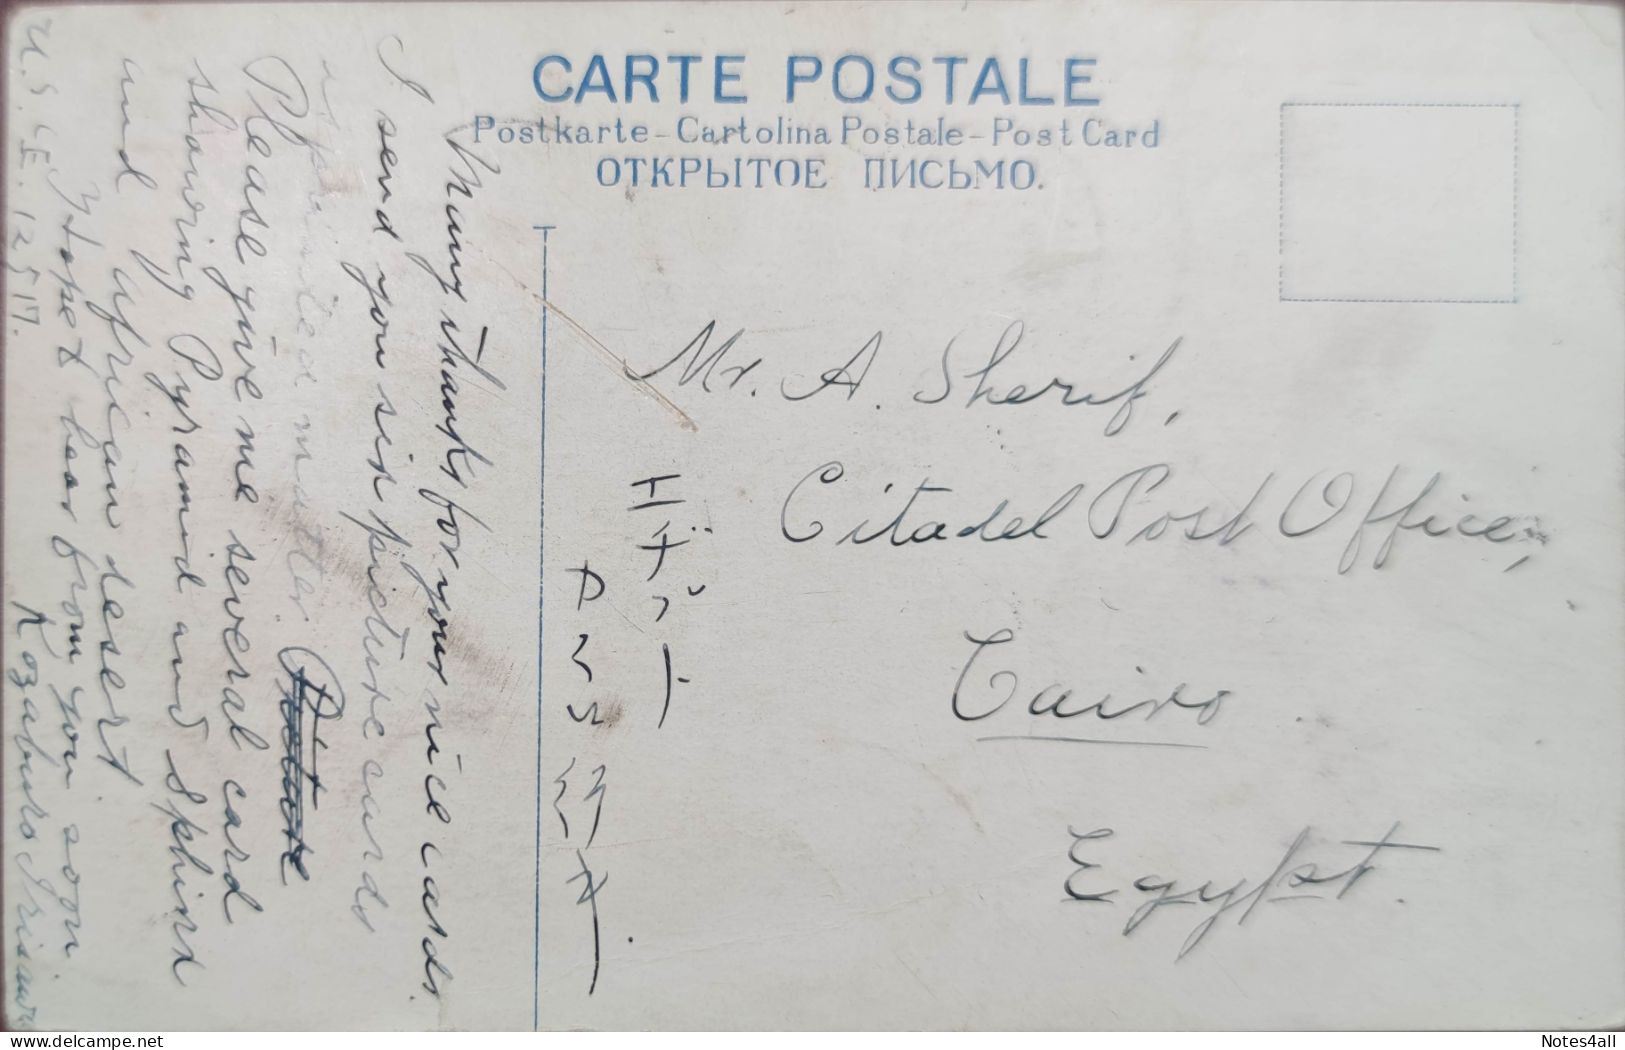 CARTE POSTALE
Postkarte - Cartolina Postale - Post Card
ОТКРЫТОЕ ПИСЬМО.
Many thanks for your nice cards.
I send you six picture cards
as printed matter.
Please give me several card
showing Pyramid and Sphinx
and African desert
I hope to hear from you soon.
Kozaburo
Mr. A. Sherif,
Citadel Post Office,
Cairo
Egypt.
エジプト
delcampe.net
Notes4all